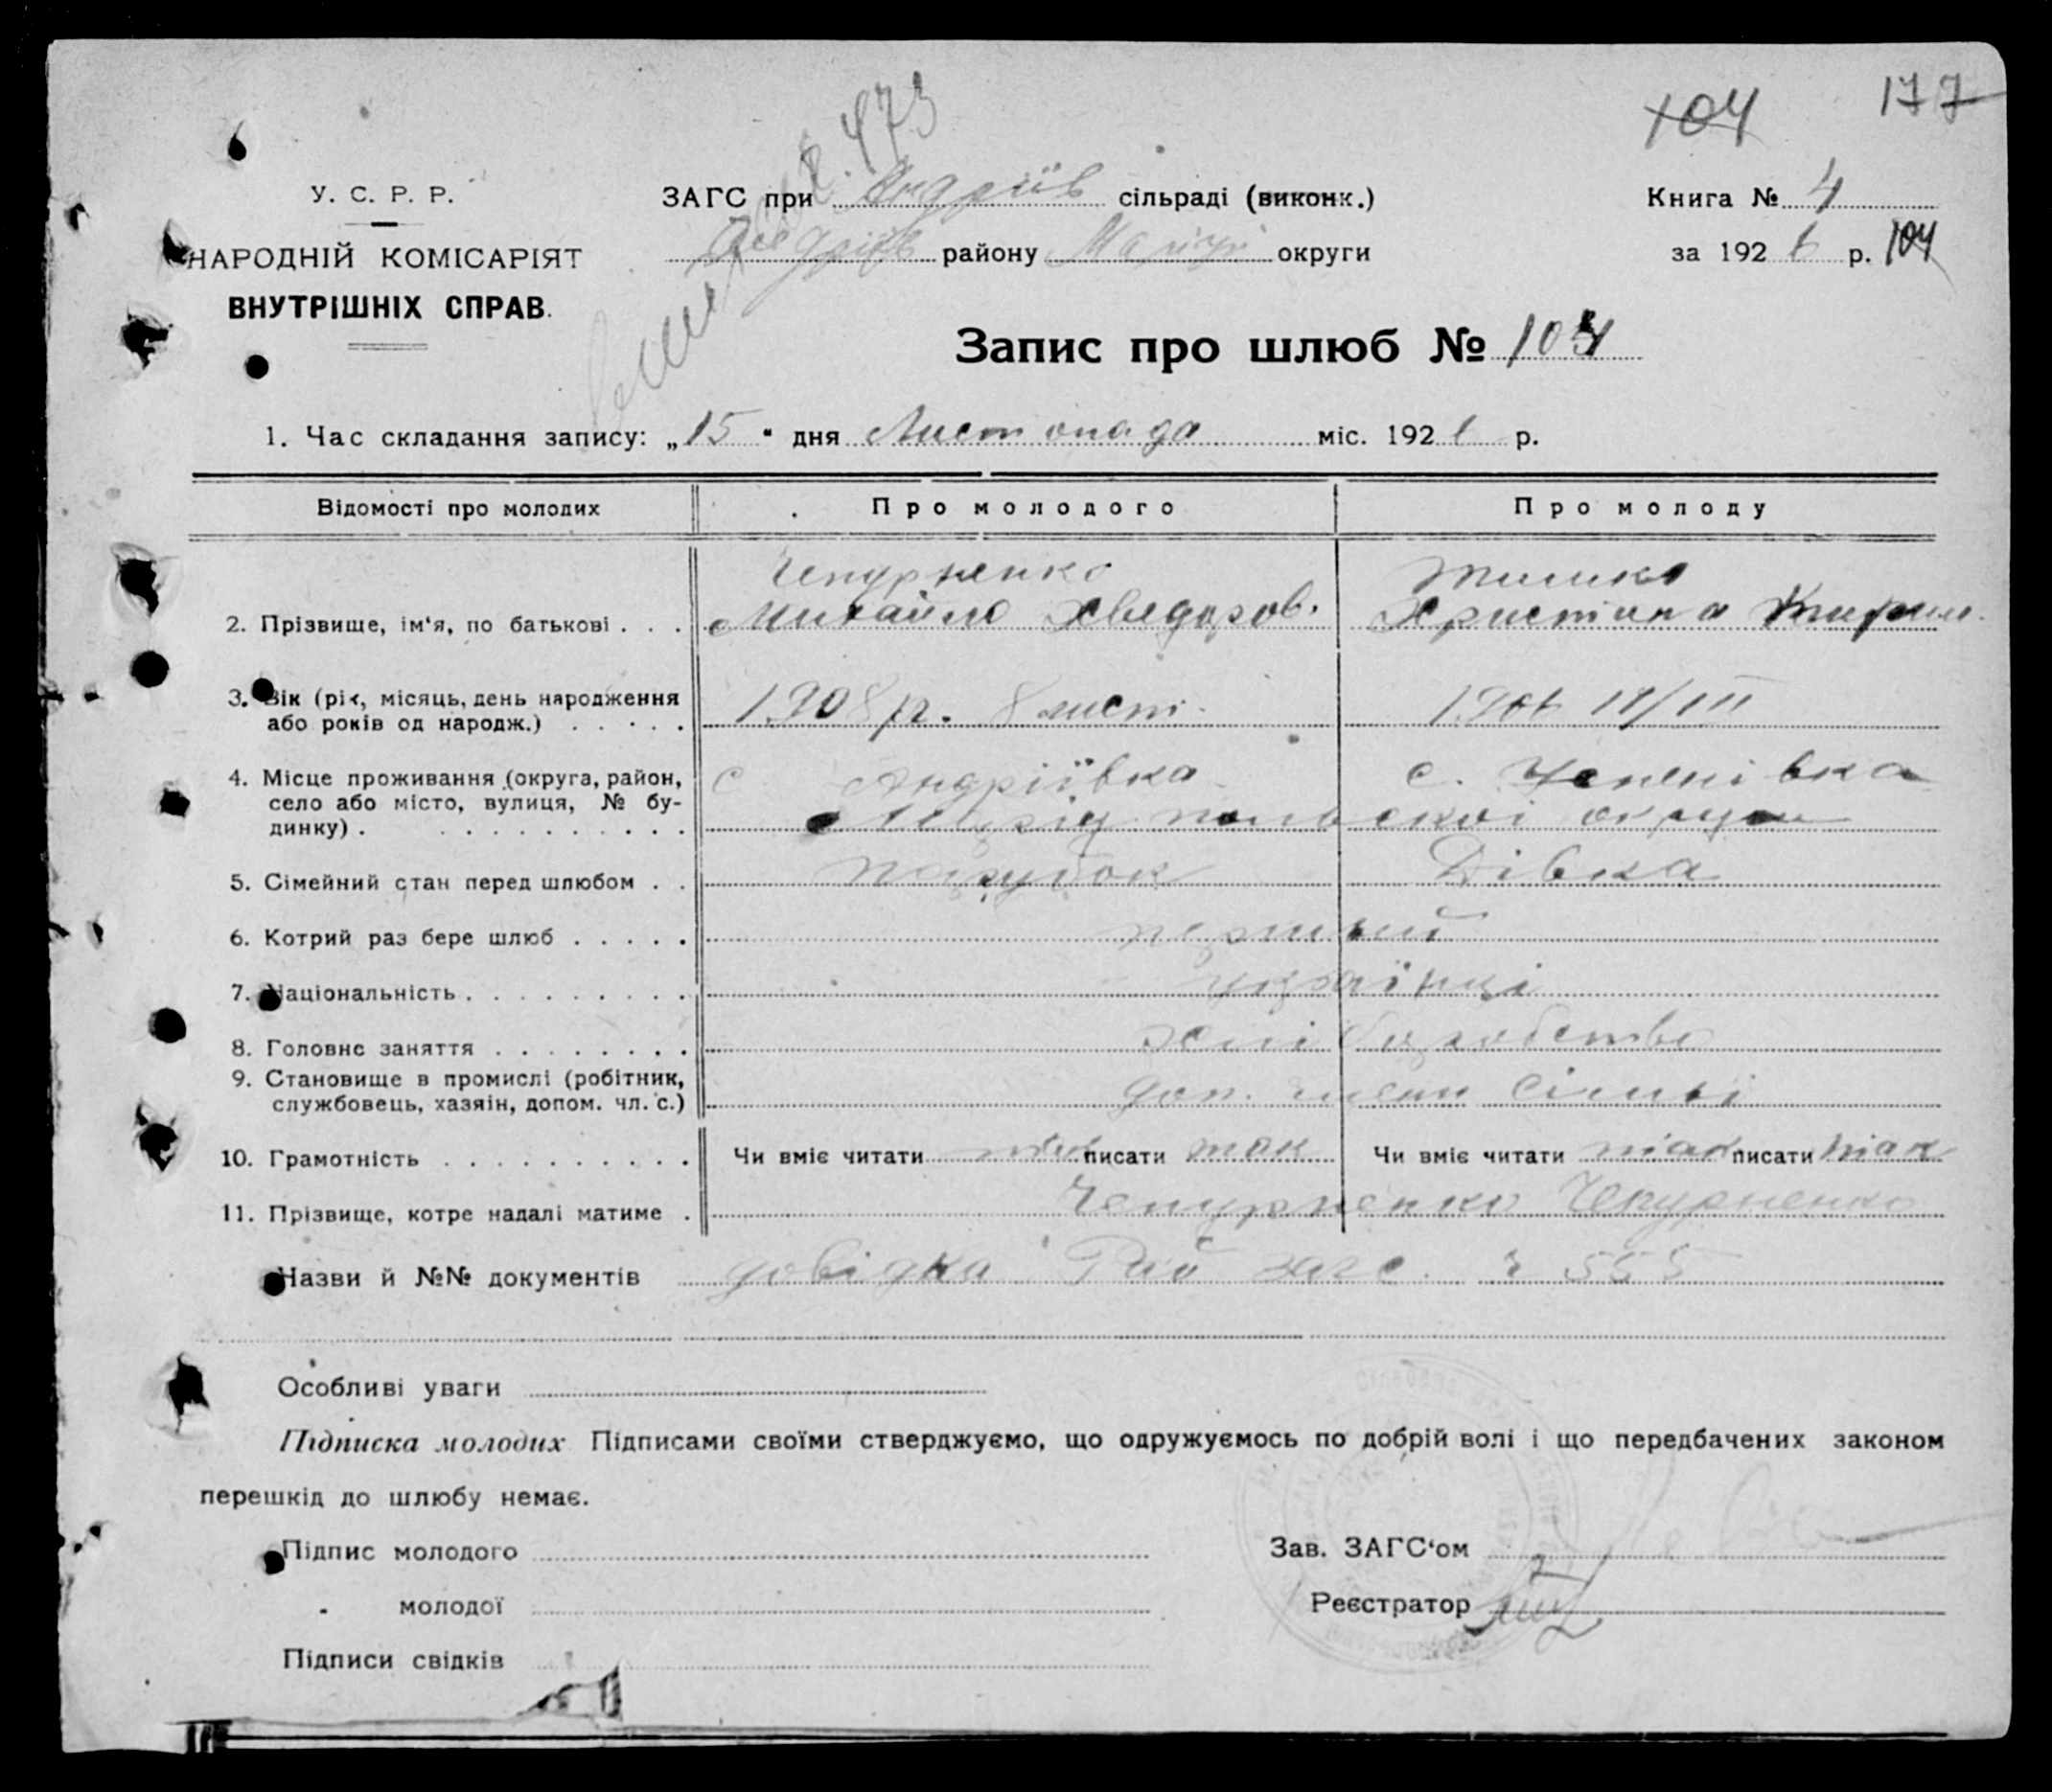 177
104
473
У. С. Р. Р.
НАРОДНІЙ КОМІСАРІЯТ
ВНУТРІШНІХ СПРАВ.
ЗАГС при Андріїв сільраді (виконк.)
Андріїв району Маріуп округи
Книга № 4
за 1926 р. 104
Запис про шлюб № 104
1. Час складання запису: „15“ дня Листопада міс. 1926 р.
Відомості про молодих Про молодого Про молоду
Чепурненко
2. Прізвище, ім'я, по батькові . . . Михайло Хведоров. Христина
3. Вік (рік, місяць, день народження
або років од народж.) . . . . . 1908 р. 8 лист. 1906 /III
4. Місце проживання (округа, район, с. Андріївка с. Успенівка
село або місто, вулиця, № бу-
динку) . . . . . . . . . . . Маріупольскої округи
5. Сімейний стан перед шлюбом . . парубок Дівка
6. Котрий раз бере шлюб . . . . . перший
7. Національність . . . . . . . . . українці
8. Головне заняття . . . . . . . . хліборобство
9. Становище в промислі (робітник,
службовець, хазяїн, допом. чл. с.) доп. член сімьї
10. Грамотність . . . . . . . . . . Чи вміє читати так писати так Чи вміє читати так писати так
11. Прізвище, котре надалі матиме . Чепурненко Чепурненко
Назви й №№ документів довідка Рай загс. ч 555
Особливі уваги
Підписка молодих Підписами своїми стверджуємо, що одружуємось по добрій волі і що передбачених законом
перешкід до шлюбу немає.
Підпис молодого
Зав. ЗАГС'ом
" молодої
Реєстратор
Підписи свідків